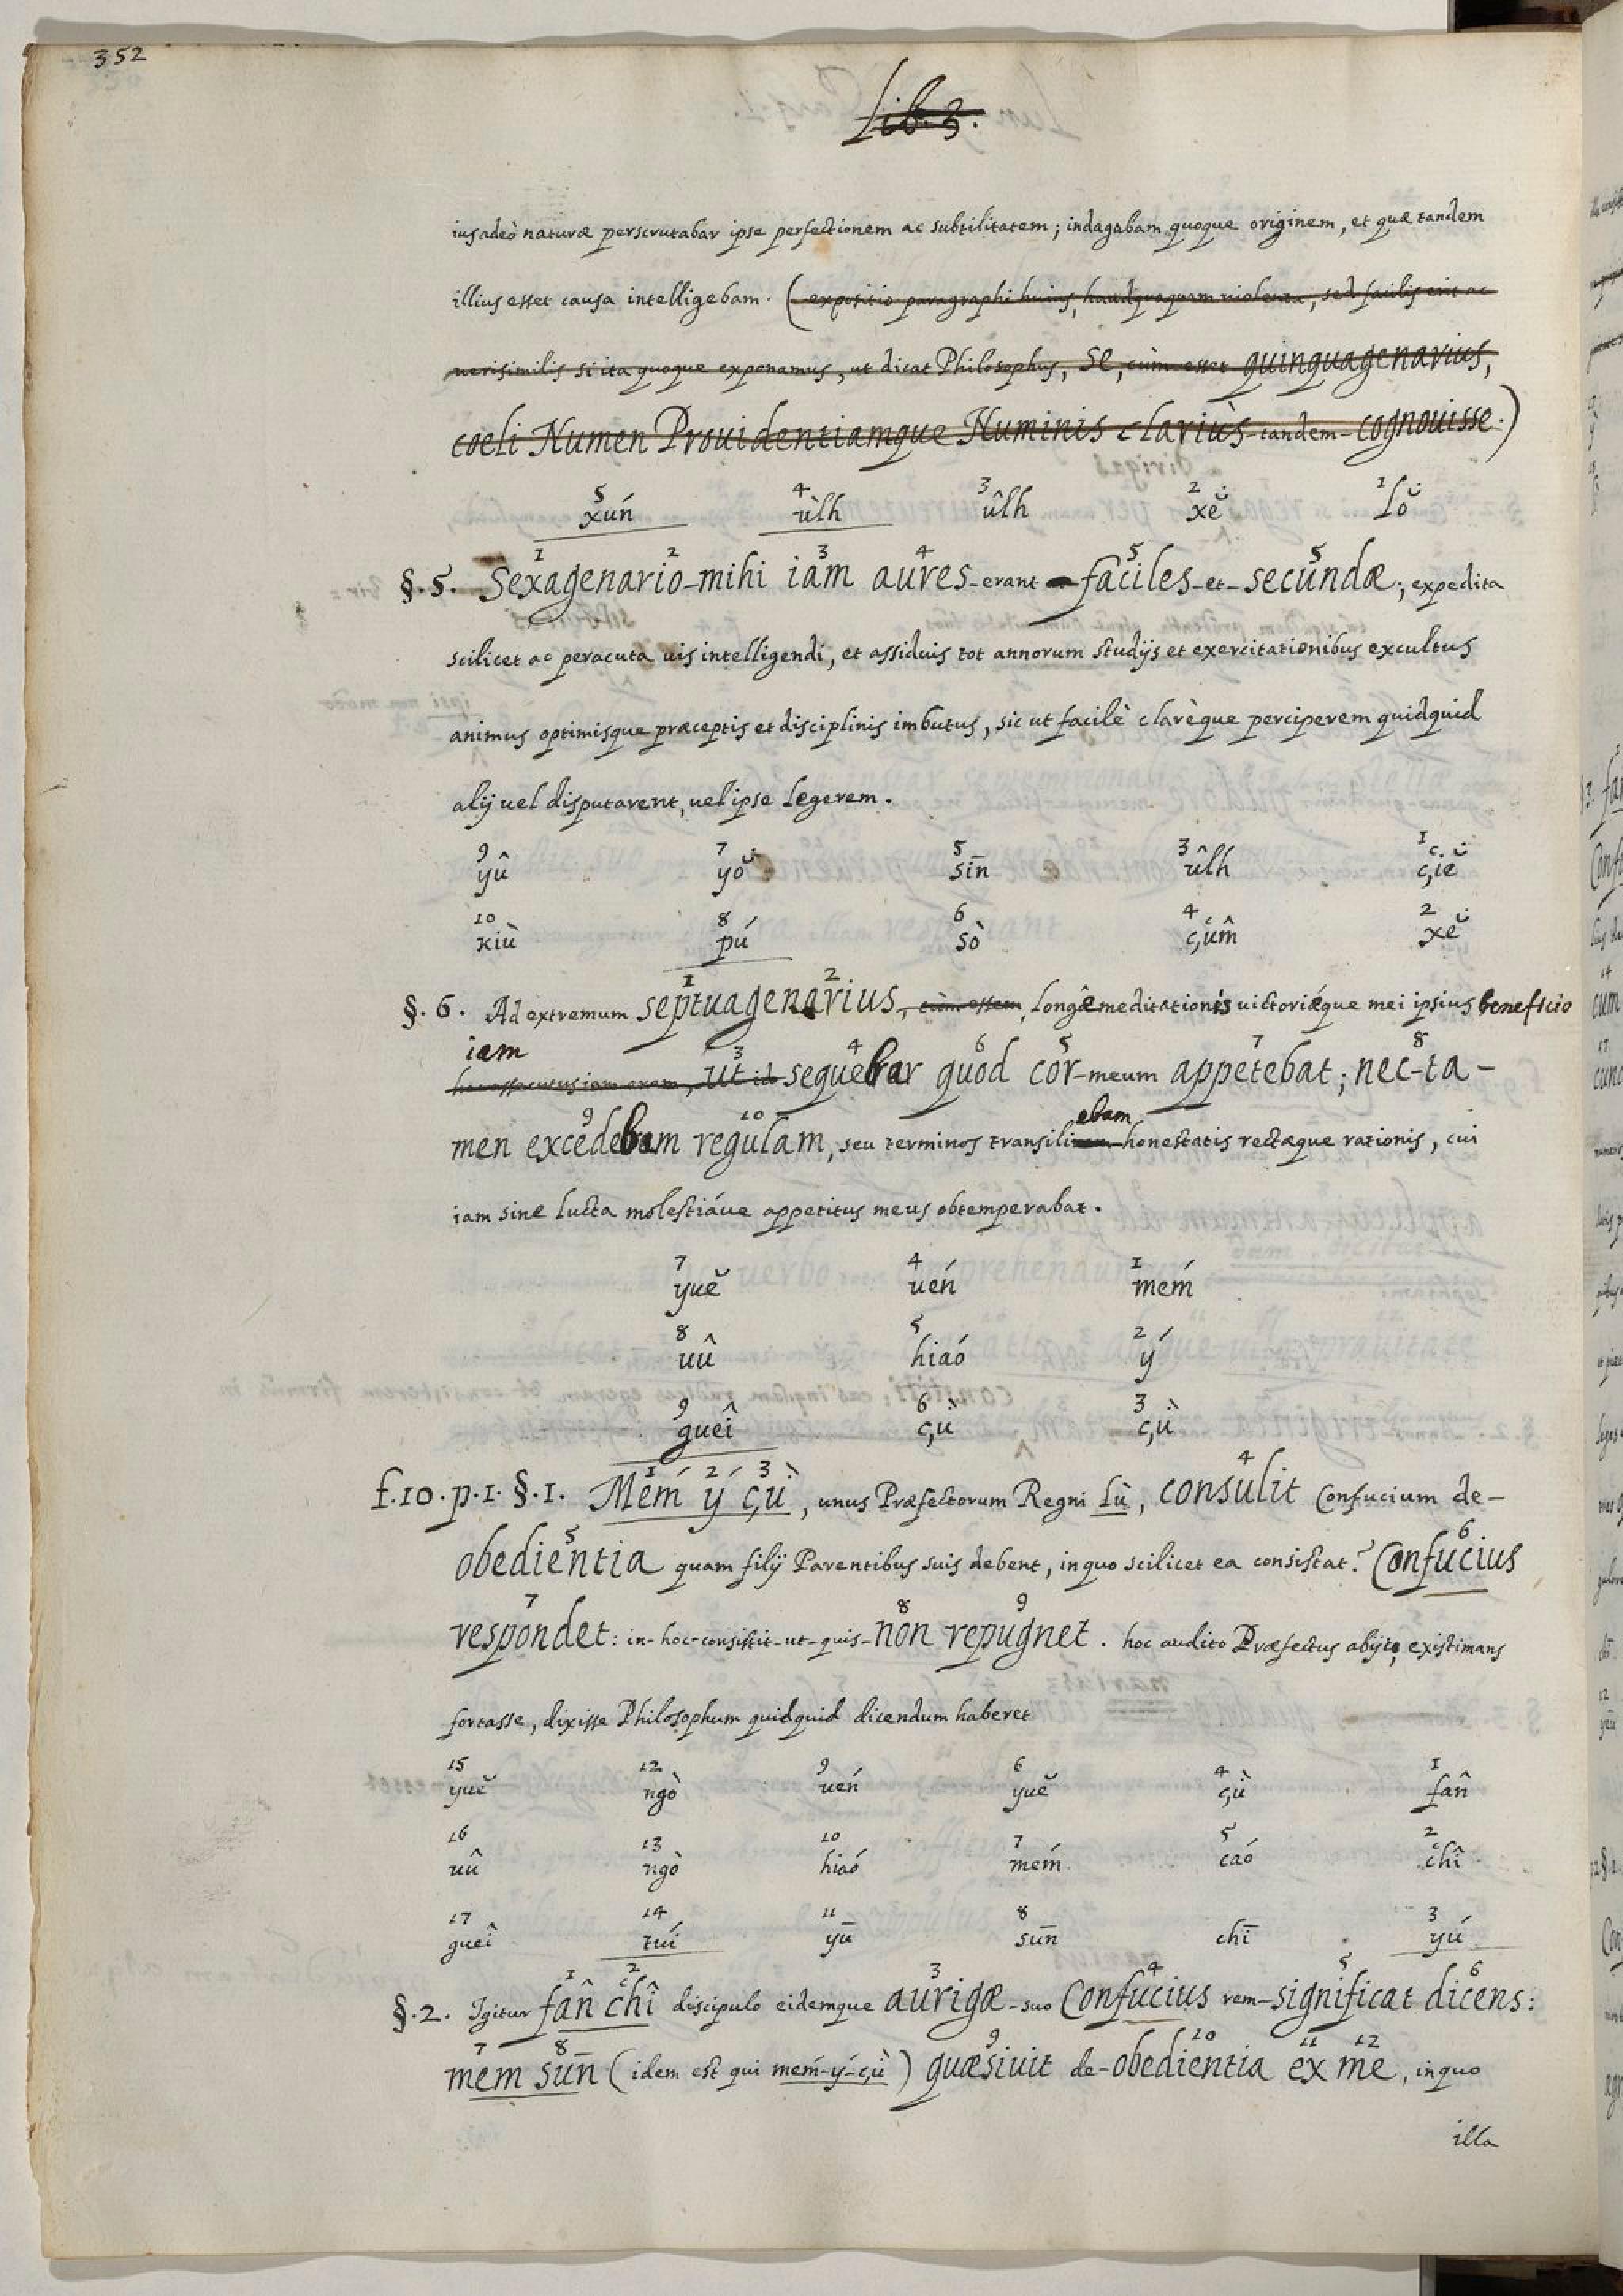 352
Lib. 3.
ius adeò naturæ perscrutabar ipse perfectionem ac subtilitatem; indagabam quoque originem, et quæ tandem
illius esset causa intelligebam. (expositio paragraphi huius, haudquaquam violenta, sed facilis erit ac
uerisimilis si ita quoque exponamus, ut dicat Philosophus, se, cùm esset quinquagenarius,
coeli Numen Prouidentiamque Numinis clariùs-tandem-cognouisse.)
5 xún 4 ùlh 3 ûlh 2 xĕ 1 lŏ
§.5. Sexagenario-mihi iam aures-erant faciles-et-secundæ; expedita
1 2 3 4 5 5
scilicet ac peracuta uis intelligendi, et assiduis tot annorum studijs et exercitationibus excultus
animus optimisque præceptis et disciplinis imbutus, sic ut facilè clarèque perciperem quidquid
alij uel disputarent, uel ipse legerem.
9 yû 7 yŏ 5 sīn 3 ûlh 1 çiĕ
10 kiù 8 pú 6 sò 4 çûm 2 xĕ
1 2
§.6. Ad extremum septuagenarius, cùm essem, longæ meditationis uictoriæque mei ipsius beneficio
iam
3 4 6 5 7 8
hoc assecutus iam eram, ut id sequebar quod cor-meum appetebat; nec-ta-
9 10 ebam
men excedebam regulam, seu terminos transili honestatis rectæque rationis, cui
iam sine lucta molestiáue appetitus meus obtemperabat.
7 yuĕ 4 uén 1 mém
8 uû 5 hiaó 2 ý
9 gueî 6 çù 3 çù
1 2 3 4
f.10.p.1.§.1. Mém ý çù, unus Præfectorum Regni Lù, consulit Confucium de-
5 6
obedientia quam filij Parentibus suis debent, in quo scilicet ea consistat? Confucius
7 8 9
respondet: in-hoc-consistit-ut-quis-non repugnet. hoc audito Præfectus abijt, existimans
fortasse, dixisse Philosophum quidquid dicendum haberet
15 yuĕ 12 ngò 9 uén 6 yuĕ 4 çù 1 fân
16 uû 13 ngò 10 hiaó 7 mém 5 caó 2 chî
17 gueî 14 tuí 11 yū 8 sūn chī 3 yú
1 2 3 4 5 6
§.2. Igitur fân chî discipulo eidemque aurigæ-suo Confucius rem-significat dicens:
7 8 9 10 11 12
mem sūn (idem est qui mém-ý-çù) quæsiuit de-obedientia ex me, in quo
illa